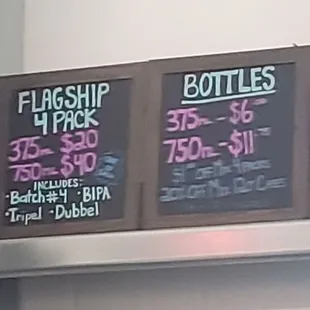 FLAGSHIP
4 PACK
375ML $20
750ML $40
INCLUDES:
·Batch#4 ·BIPA
·Tripel ·Dubbel
BOTTLES
375ML - $6
750ML - $11
$1 OFF Mix 4 Packs
20% OFF Mix Out Cases